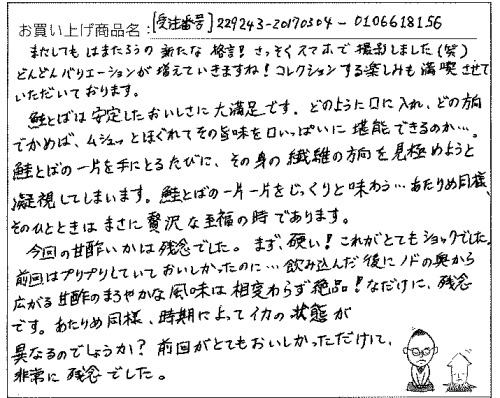 お買い上げ商品名：[受注番号] 229243-20170304-0106618156
またしても はまたろうの 新たな 格言! さっそくスマホで 撮影しました(笑)
どんどんバリエーションが 増えていきますね! コレクションする楽しみも 満喫させて
いただいております。
鮭とばは 安定したおいしさに 大満足です。どのように 口に入れ、どの方向
でかめば、ムシュッとほぐれてその旨味を口いっぱいに 堪能できるのか…。
鮭とばの一片を手にとるたびに、その身の繊維の方向を 見極めようと
凝視してしまいます。鮭とばの一片一片をじっくりと味わう…あたりめ同様、
そのひとときは まさに 贅沢な至福の時であります。
今回の甘酢いかは残念でした。まず、硬い! これがとてもショックでした。
前回はプリプリしていておいしかったのに…飲み込んだ 後に ノドの奥から
広がる 甘酢のまろやかな風味は 相変わらず絶品! なだけに、残念
です。あたりめ同様、時期によってイカの状態が
異なるのでしょうか? 前回がとてもおいしかっただけに、
非常に 残念でした。